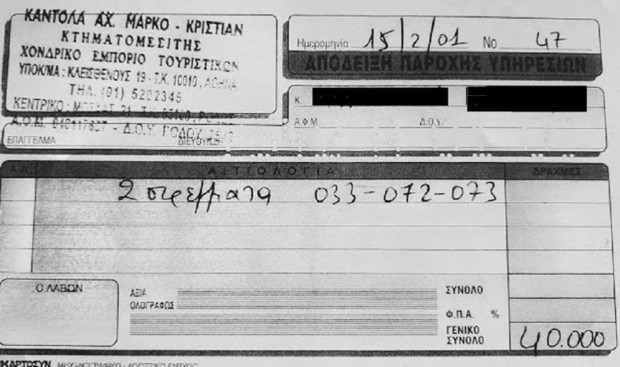 ΚΑΝΤΟΛΑ ΑΧ. ΜΑΡΚΟ - ΚΡΙΣΤΙΑΝ
ΚΤΗΜΑΤΟΜΕΣΙΤΗΣ
ΧΟΝΔΡΙΚΟ ΕΜΠΟΡΙΟ ΤΟΥΡΙΣΤΙΚΩΝ
ΥΠΟΚ/ΜΑ: ΚΛΕΙΣΘΕΝΟΥΣ 19 - Τ.Κ. 10010, ΑΘΗΝΑ
ΤΗΛ. (01) 5202345
ΚΕΝΤΡΙΚΟ: 31 - Τ.Κ. ΡΟΔΟΣ
Α.Φ.Μ. - Δ.Ο.Υ. ΡΟΔΟΥ
ΕΠΑΓΓΕΛΜΑ ΔΙΕΥΘΥΝΣΗ
Ημερομηνία 15/2/01 No 47
ΑΠΟΔΕΙΞΗ ΠΑΡΟΧΗΣ ΥΠΗΡΕΣΙΩΝ
Κ.
Α.Φ.Μ. Δ.Ο.Υ.
ΑΙΤΙΟΛΟΓΙΑ ΔΡΑΧΜΕΣ
2 στρέμματα 033-072-073
Ο ΛΑΒΩΝ
ΑΞΙΑ
ΟΛΟΓΡΑΦΩΣ
ΣΥΝΟΛΟ
Φ.Π.Α. %
ΓΕΝΙΚΟ
ΣΥΝΟΛΟ 40.000